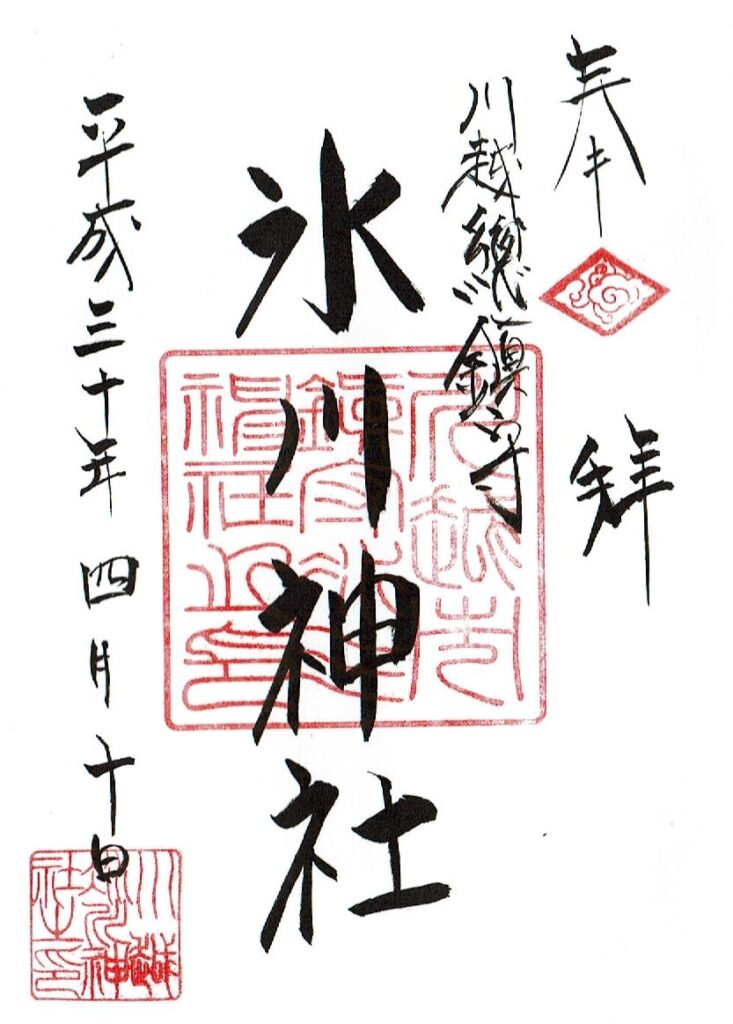 奉拝
川越總鎮守
氷川神社
平成三十年四月十日